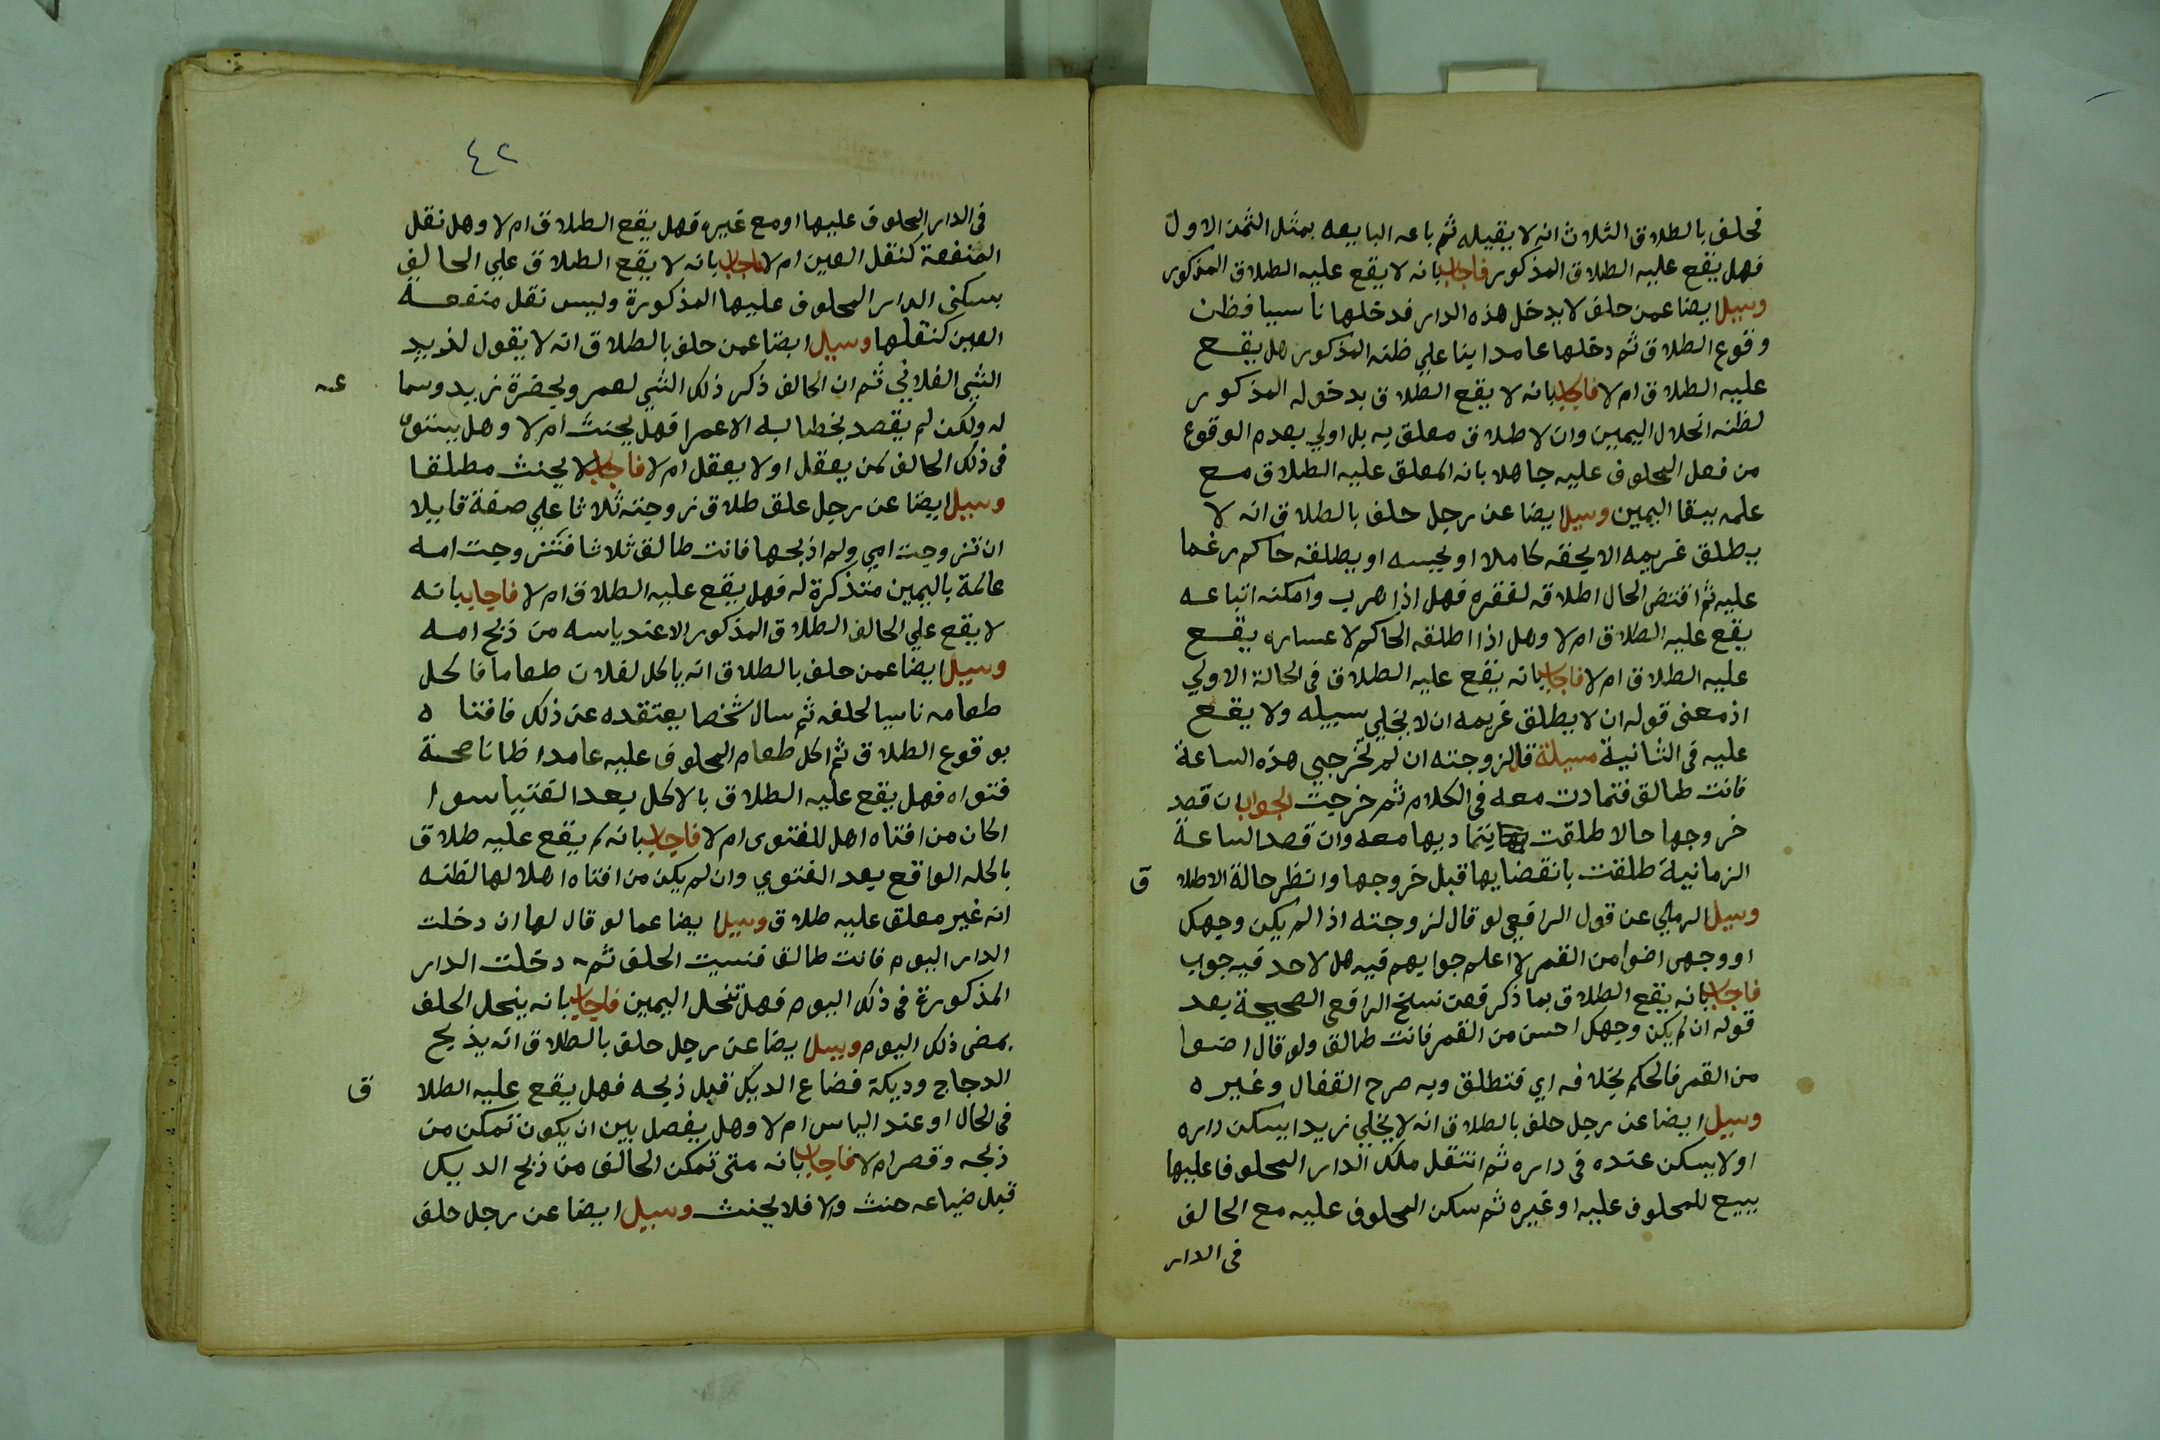 فحلف بالطلاق الثلاث انه لا يقيله ثم باعه البايعه بمثل الثمن الاول
فهل يقع عليه الطلاق المذكور فاجاب بانه لا يقع عليه الطلاق المذكور
وسيل ايضا عمن حلف لا يدخل هذه الدار فدخلها ناسيا فظن
وقوع الطلاق ثم دخلها عامدا بنا علي ظنه المذكور هل يقع
عليه الطلاق ام لا فاجاب بانه لا يقع الطلاق بدخوله المذكور
لظنه انحلال اليمين وان لا طلاق معلق به بل اولي بعدم الوقوع
من فعل المحلوف عليه جاهلا بانه المعلق عليه الطلاق مع
علمه ببقا اليمين وسيل ايضا عن رجل حلف بالطلاق انه لا
يطلق غريمه الا بحقه كاملا او يحبسه او يطلقه حاكم رغما
عليه ثم اقتضى الحال اطلاقه لفقره فهل اذا هرب وامكنه اتباعه
يقع عليه الطلاق ام لا وهل اذا اطلقه الحاكم لاعساره يقع
عليه الطلاق ام لا فاجاب بانه يقع عليه الطلاق في الحالة الاولي
اذ معنى قوله ان لا يطلق غريمه ان لا يخلي سبيله ولا يقع
عليه في الثانية مسيلة قال لزوجته ان لم تخرجي هذه الساعة
فانت طالق فتمادت معه في الكلام ثم خرجت الجواب ان قصد
خروجها حالا طلقت بتماديها معه وان قصد الساعة
الزمانية طلقت بانقضايها قبل خروجها وانظر حالة الاطلا ق
وسيل الرملي عن قول الرافعي لو قال لزوجته اذا لم يكن وجهك
او وجهى اضوا من القمر لا اعلم جوابهم فيه هل لاحد فيه جواب
فاجاب بانه يقع الطلاق بما ذكر فعن نسخ الرافعي الصحيحة بعد
قوله ان لم يكن وجهك احسن من القمر فانت طالق ولو قال اضوا
من القمر فالحكم بخلافه اي فتطلق وبه صرح القفال وغيره
وسيل ايضا عن رجل حلف بالطلاق انه لا يخلي زيدا يسكن داره
او لا يسكن عنده في داره ثم انتقل ملك الدار المحلوف عليها
ببيع للمحلوف عليه او غيره ثم سكن المحلوف عليه مع الحالف
في الدار
٤٢
في الدار المحلوف عليها او مع غيره فهل يقع الطلاق ام لا وهل نقل
المنفعة كنقل العين ام لا فاجاب بانه لا يقع الطلاق علي الحالف
بسكنى الدار المحلوف عليها المذكورة وليس نقل منفعة
العين كنقلها وسيل ايضا عمن حلف بالطلاق انه لا يقول لزيد
الشي الفلاني ثم ان الحالف ذكر ذلك الشي لعمر وبحضرة زيد وسما عه
له ولكن لم يقصد بخطابه الا عمرا فهل يحنث ام لا وهل يستوي
في ذلك الحالف لمن يعقل او لا يعقل ام لا فاجاب لا يحنث مطلقا
وسيل ايضا عن رجل علق طلاق زوجته ثلاثا علي صفة قايلا
ان تزوجت امي ولم اذبحها فانت طالق ثلاثا فتزوجت امه
عالمة باليمين متذكرة له فهل يقع عليه الطلاق ام لا فاجاب بانه
لا يقع علي الحالف الطلاق المذكور الا عند ياسه من ذبح امه
وسيل ايضا عمن حلف بالطلاق انه ياكل لفلان طعاما فاكل
طعامه ناسيا لحلفه ثم سال شخصا يعتقده عن ذلك فافتاه
بوقوع الطلاق ثم اكل طعام المحلوف عليه عامدا ظانا صحة
فتواه فهل يقع عليه الطلاق بالاكل بعد الفتيا سوا
اكان من افتاه اهل للفتوى ام لا فاجاب بانه لم يقع عليه طلاق
باكله الواقع بعد الفتوي وان لم يكن من افتاه اهلا لها لظنه
انه غير معلق عليه طلاق وسيل ايضا عما لو قال لها ان دخلت
الدار اليوم فانت طالق فنسيت الحلف ثم دخلت الدار
المذكورة في ذلك اليوم فهل تنحل اليمين فاجاب بانه ينحل الحلف
بمضى ذلك اليوم وسيل ايضا عن رجل حلف بالطلاق انه يذبح
الدجاج وديكة فضاع الديك قبل ذبحه فهل يقع عليه الطلا ق
في الحال او عند الياس ام لا وهل يفصل بين ان يكون تمكن من
ذبحه وقصر ام لا فاجاب بانه متى تمكن الحالف من ذبح الديك
قبل ضياعه حنث والا فلا يحنث وسيل ايضا عن رجل حلف